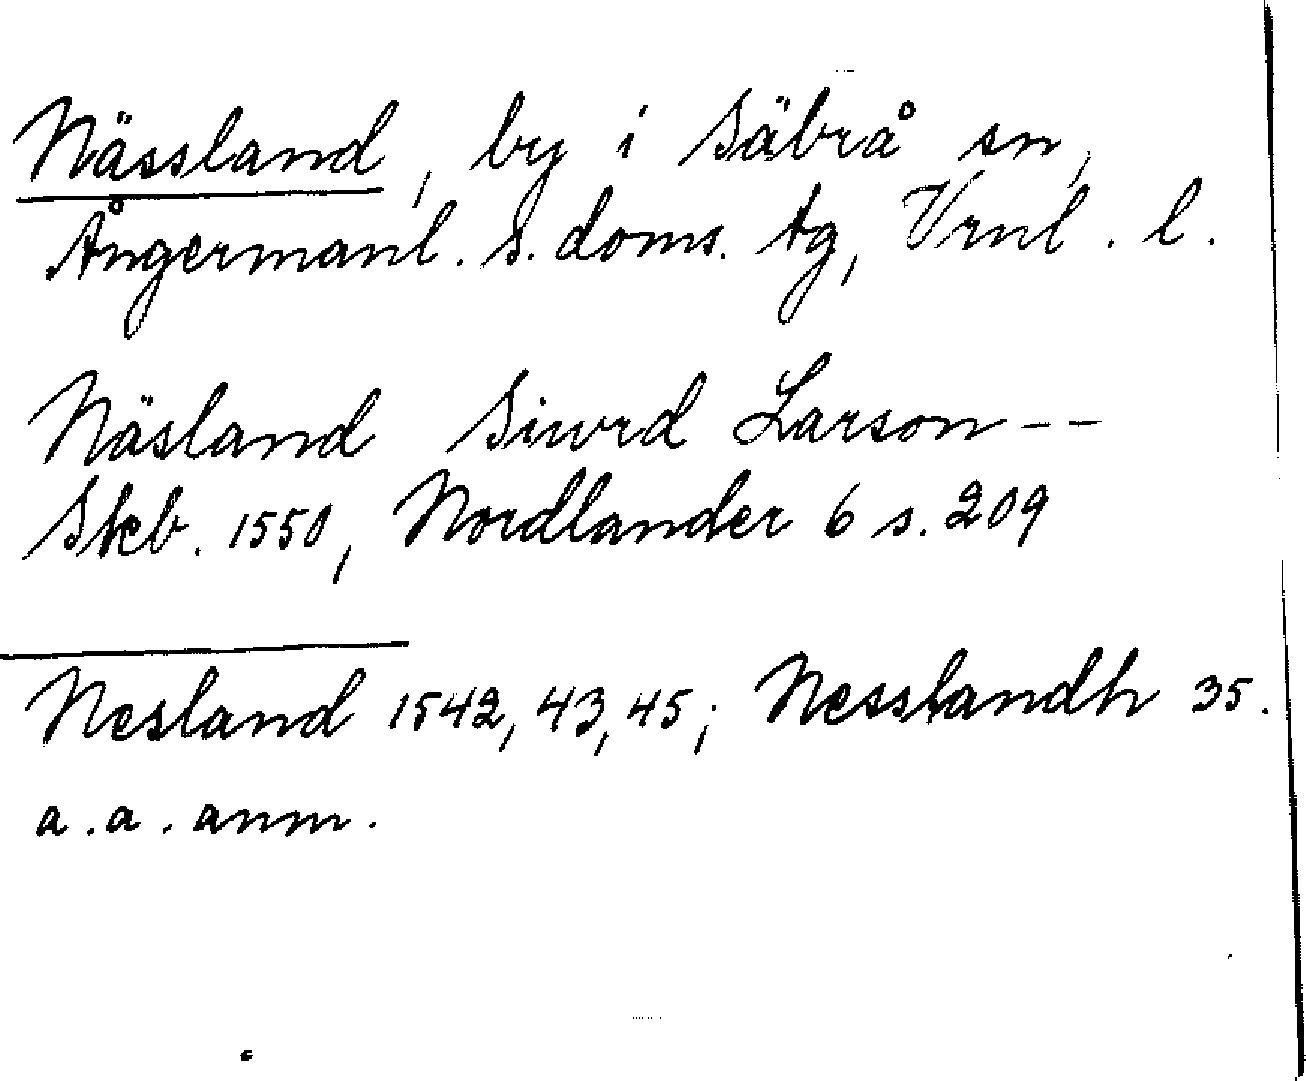 Nässland, by i Säbrå sn,
Ångermanl. s. doms. tg, Vrnl. l.
Näsland Siwrd Larson--
Skb. 1550, Nordlander 6 s. 209
Nesland 1542, 43, 45; Nesslandh 35.
a.a. anm.